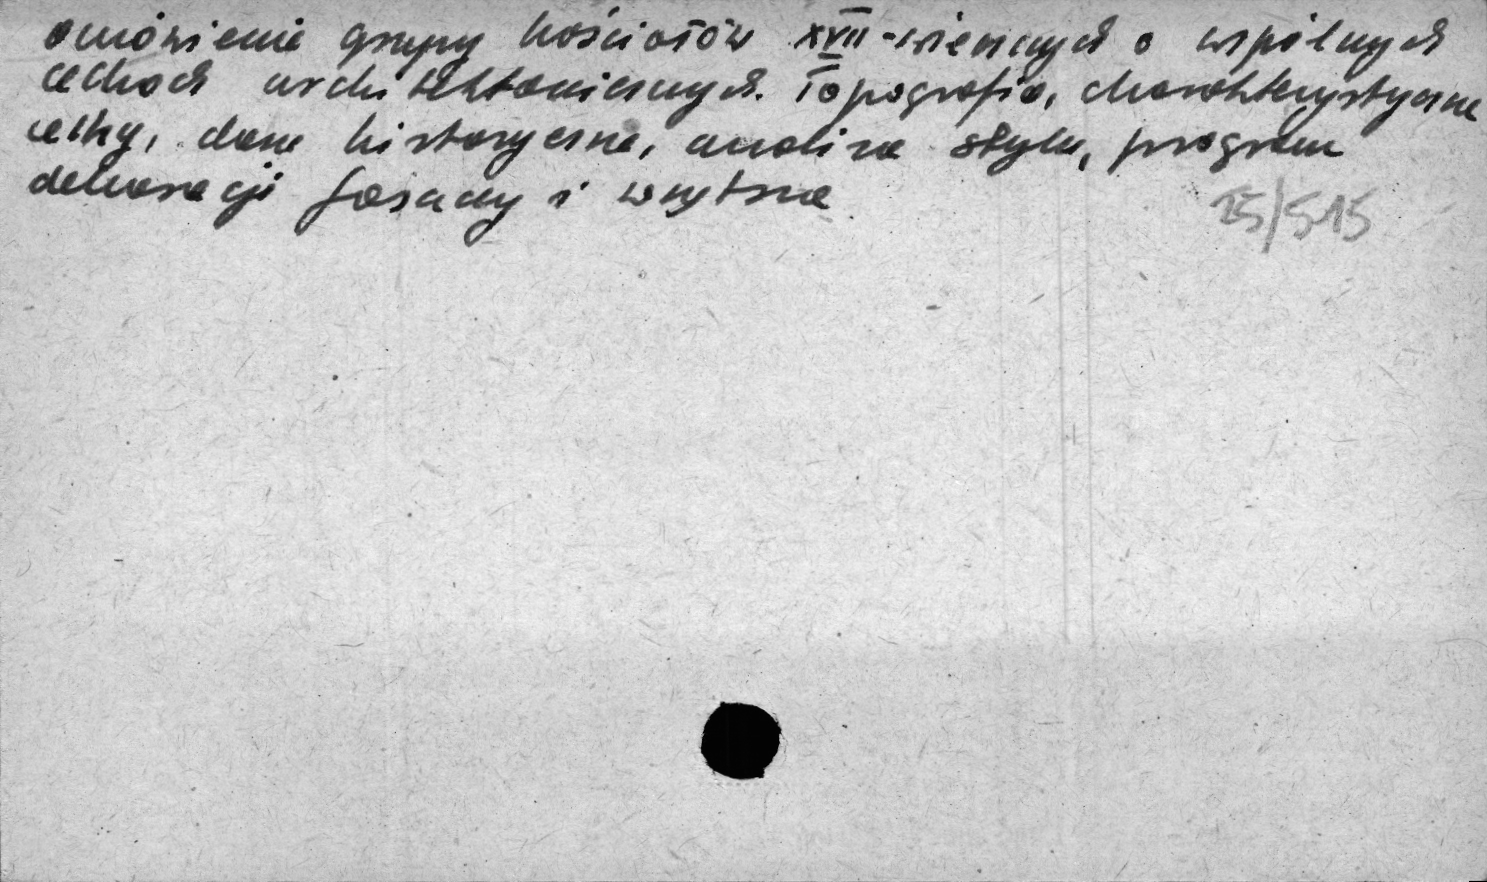 omówienie grupy kościołów XVII-wiecznych o wspólnych
cechach architektonicznych. Topografia, charakterystyczne
cechy, dane historyczne, analiza stylu, program
dekoracji fasady i wnętrza
25/515